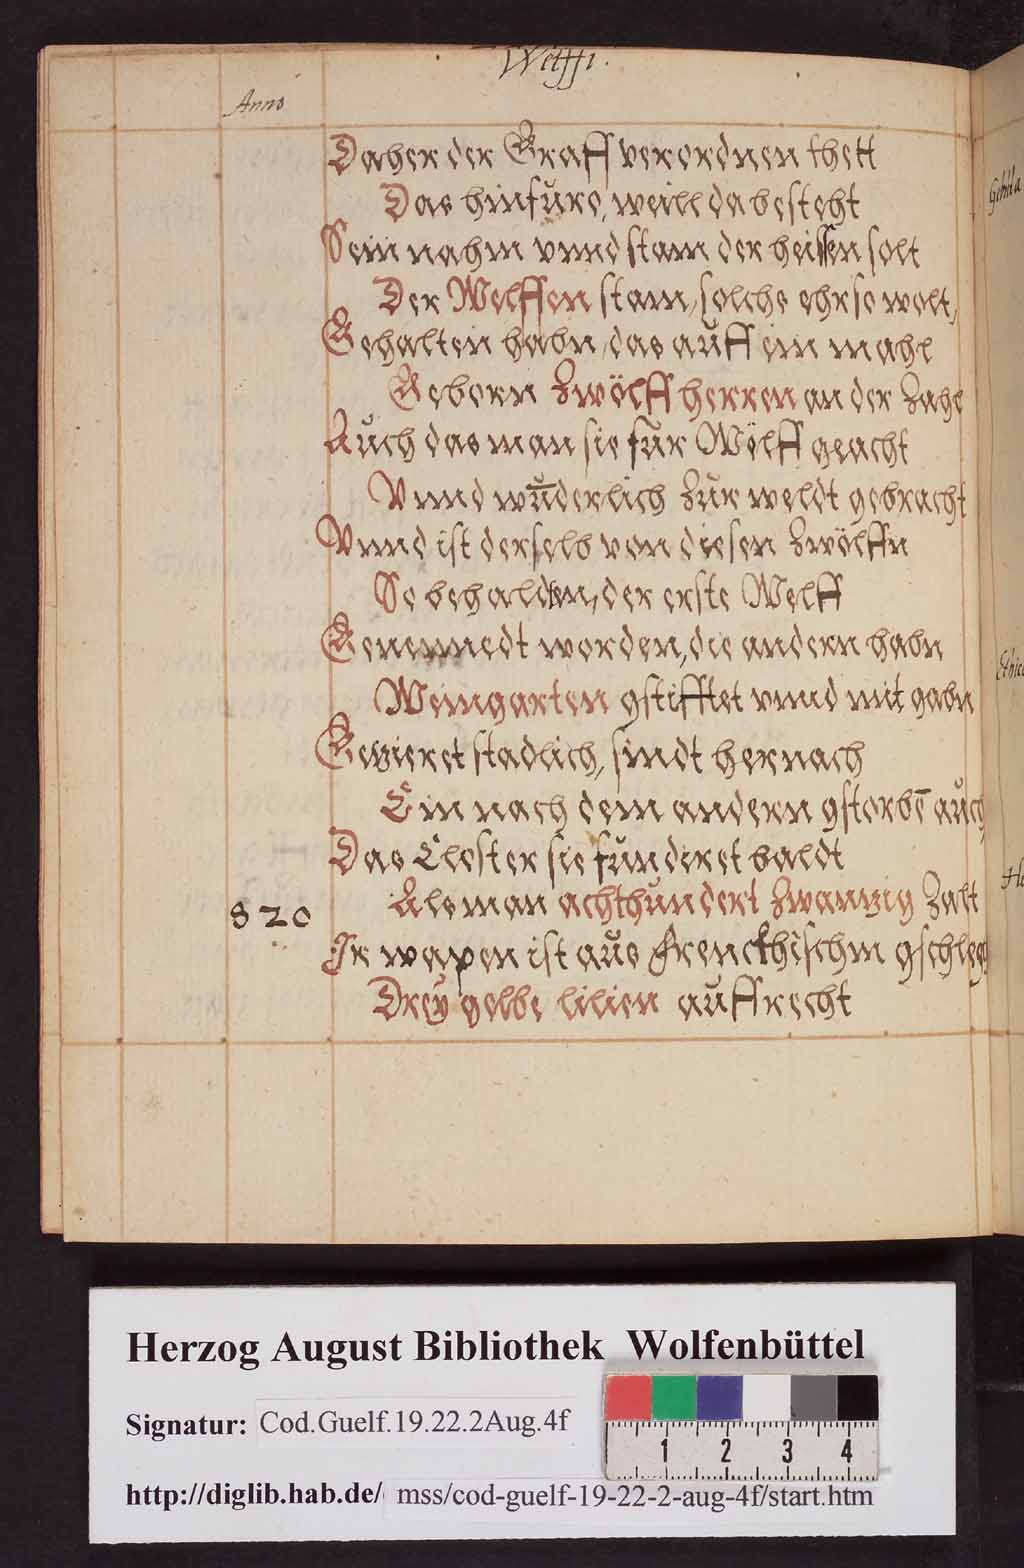 Welffi.
Anno
Daher der Graff verordnen thett
Das hinfüro, weill da besteht
Sein nahm vnnd stam der heissen solt
Der Welffen stam, solche ehr so wolt,
Gehalten habn, das auff ein mahl
Geborn Zwölff herren an der Zahl
Auch das man sie für Wölff geacht
Vnnd wūderlich Zur weldt gebracht
Vnnd ist derselb von diesen Zwölffn
So behalden, der erste Welff
Genenndt worden, die andern habn
Weingarten gstifftet vnnd mit gabn
Gezieret stadlich, sindt hernach
Ein nach dem andern gstorbē auch
Das Closter sie funderet baldt
820 Als man achthundert Zwanzig Zalt
Ir wapen ist aus Frenckhischm gschlegt
Drey gelbe lilien auffrecht
Herzog August Bibliothek Wolfenbüttel
Signatur: Cod.Guelf.19.22.2Aug.4f
1 2 3 4
http://diglib.hab.de/ mss/cod-guelf-19-22-2-aug-4f/start.htm